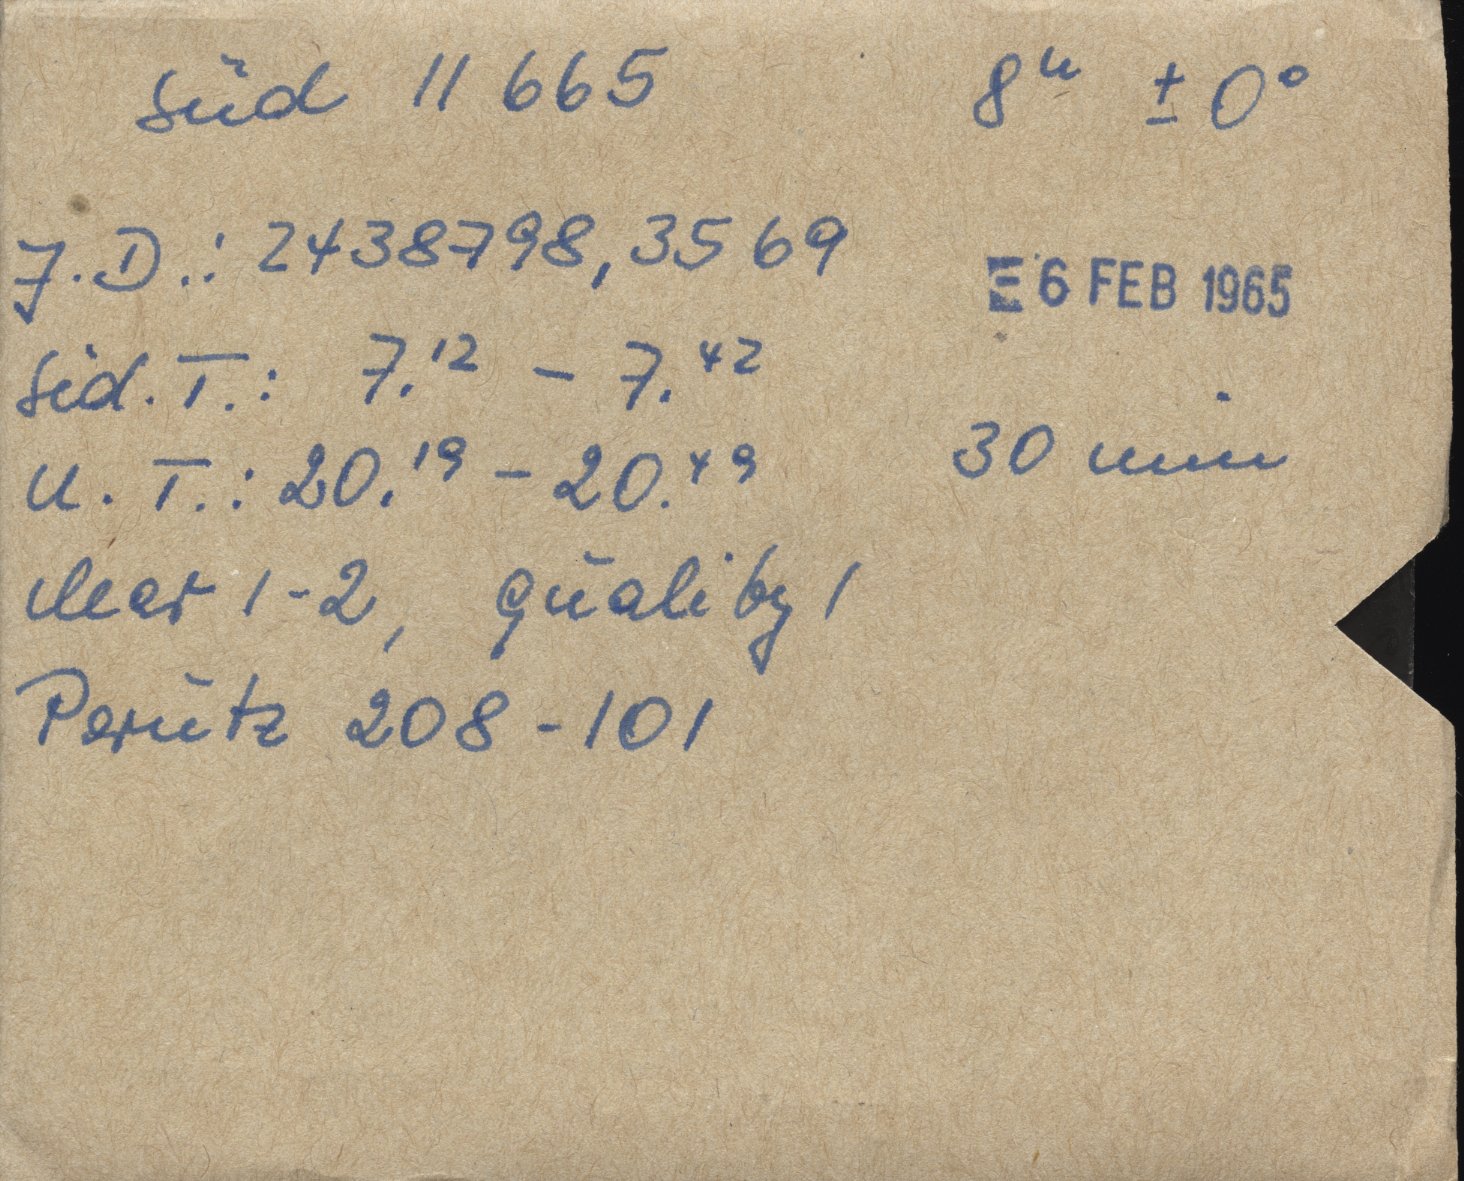 Süd 11 665 8ʰ ± 0°
J.D.: 2438798,3569
6 FEB 1965
Sid. T.: 7.¹² – 7.⁴²
U. T.: 20.¹⁹ – 20.⁴⁹ 30 min
clear 1-2, Quality 1
Perutz 208-101